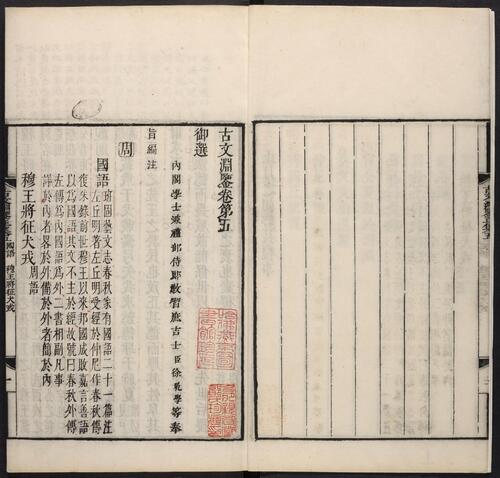 古文淵鑒卷第五
御選
內閣學士兼禮部侍郎教習庶吉士臣徐乾學等奉
旨編注
周
國語
班固藝文志春秋家有國語二十一篇注
左丘明著左丘明受經於仲尼作春秋傳
復采錄前世穆王以來邦國成敗嘉言善語
以為國語其文不主於經故號曰春秋外傳
左傳為內國語為外二書相副凡事
詳於內者畧於外備於外者簡於內
穆王將征犬戎
周語
國語
穆王將征犬戎
一